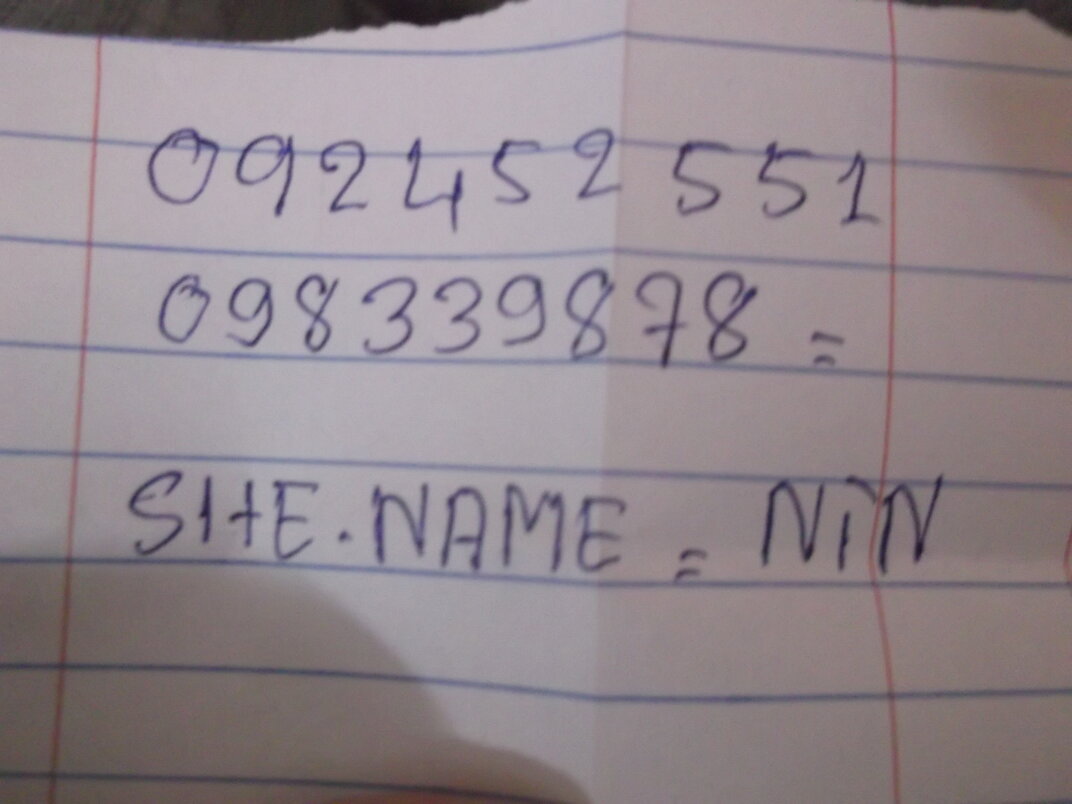 092452 551
098339878 =
SHE.NAME = NiN